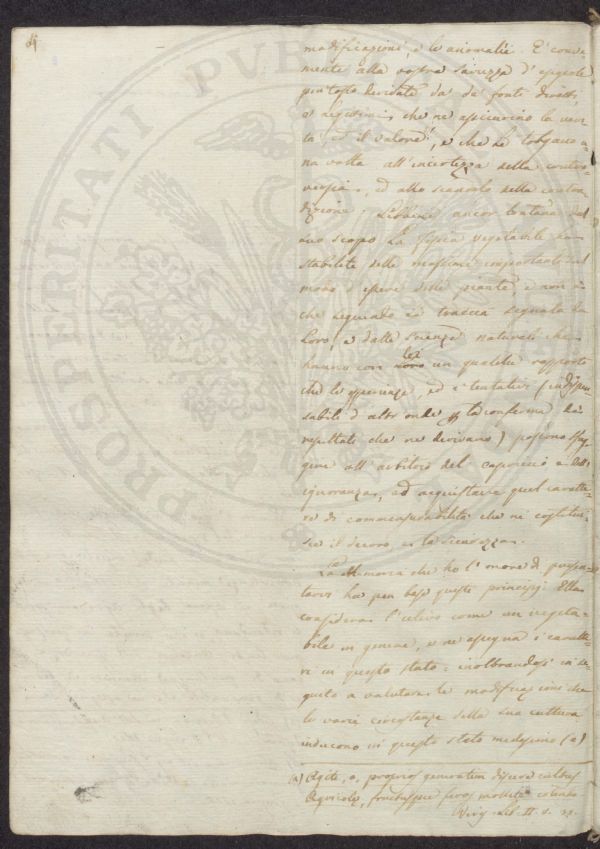 modificazioni, e le anomalie. E' conve-
mente alla vostra saviezza d'
piutosto derivate da' de' fonti diretti,
e legitimi, che ne assicurino la veri-
tà, ed il valore, e che le tolgano u-
na volta all'incertezza della contro-
versia, ed allo scandalo della contra-
dizione. ancor lontana dal
suo scopo la fisica vegetabile ha
stabilite delle massime importanti sul
modo d'essere delle piante, e non è
che seguendo la traccia segnata da
loro, e dalle scienze naturali che
hanno con lei un qualche rapporto
che le esperienze, ed i tentativi (indispen-
sabili d'altronde la conferma da'
resultati che ne derivano) possono sfug-
gire all'arbitrio del capriccio e dell'
ignoranza, ed acquistare quel caratte-
re di commensurabilità che ne costitui-
sce il decoro, e la sicurezza.
La Memoria che ho l'onore di presen-
tarvi ha per base questi principj. Ella
considera l'ulivo come un vegeta-
bile in genere, e ne assegna i caratte-
ri in questo stato: inoltrandosi in se-
guito a valutare le modificazioni che
le varie circostanze della sua cultura
inducono in questo stato medesimo (a)
(a) Agite, o, proprios generatim discite cultus
Agricolae, fructusque feros mollite colendo
Virg. Lib. II. v.
PROSPERITATI